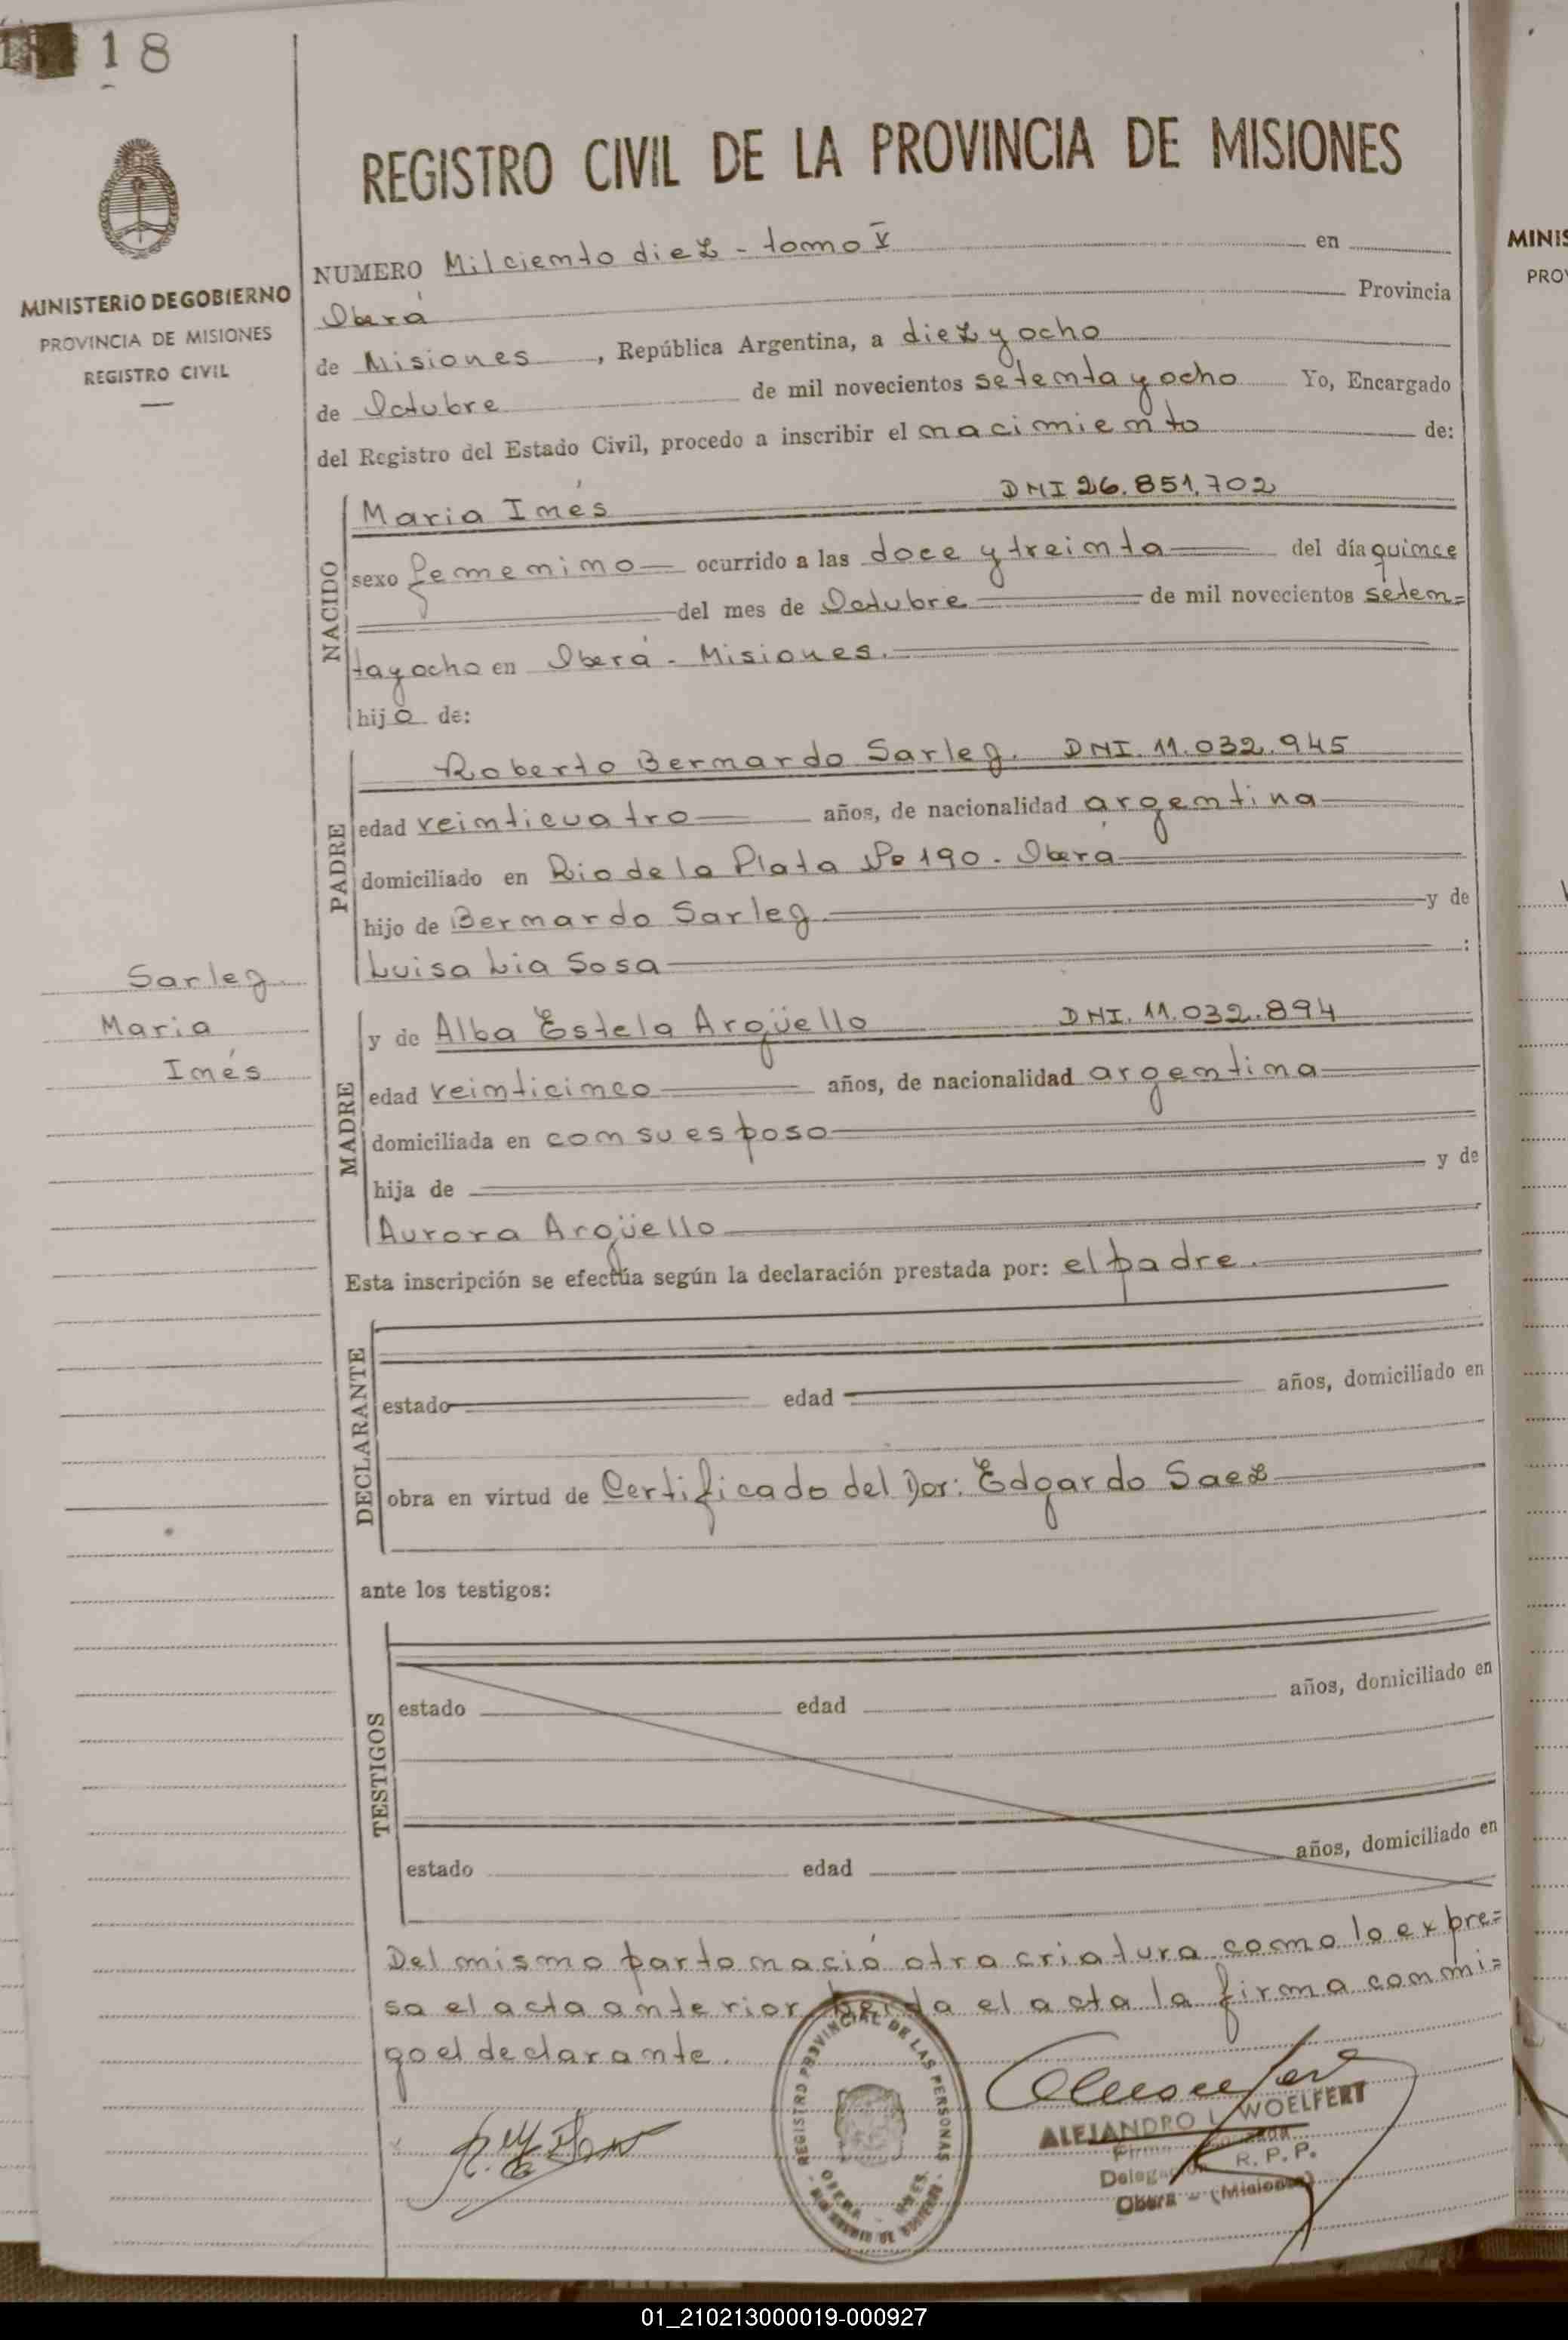 118
MINISTERIO DE GOBIERNO
PROVINCIA DE MISIONES
REGISTRO CIVIL
REGISTRO CIVIL DE LA PROVINCIA DE MISIONES
NUMERO Milciento diez - tomo V en
Oberá Provincia
de Misiones, República Argentina, a diez y ocho
de Octubre de mil novecientos setenta y ocho Yo, Encargado
del Registro del Estado Civil, procedo a inscribir el nacimiento de:
NACIDO
Maria Inés DNI 26.851.702
sexo femenino ocurrido a las doce y treinta del día quince
del mes de Octubre de mil novecientos seten=
ta y ocho en Oberá - Misiones.
hija de:
PADRE
Roberto Bernardo Sarleg. DNI. 11.032.945
edad veinticuatro años, de nacionalidad argentina
domiciliado en Rio de la Plata Nº 190 - Oberá
hijo de Bernardo Sarleg. y de
Luisa Lia Sosa :
Sarleg
Maria
Inés
MADRE
y de Alba Estela Argüello DNI. 11.032.894
edad veinticinco años, de nacionalidad argentina
domiciliada en con su esposo
hija de y de
Aurora Argüello
Esta inscripción se efectúa según la declaración prestada por: el padre.
DECLARANTE
estado edad años, domiciliado en
obra en virtud de Certificado del Dor: Edgardo Saez
ante los testigos:
TESTIGOS
estado edad años, domiciliado en
estado edad años, domiciliado en
Del mismo parto nació otra criatura como lo expre=
sa el acta anterior leida el acta la firma conmi=
go el declarante.
REGISTRO PROVINCIAL DE LAS PERSONAS
ALEJANDRO L. WOELFERT
Firma
Delegación R. P. P.
Oberá - (Misiones)
MINIS
PRO
01_210213000019-000927